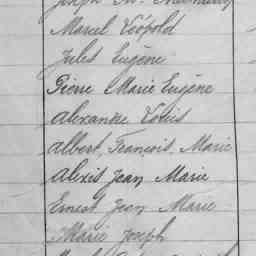 Joseph
Marcel Léopold
Jules Eugène
Pierre Marie Eugène
Alexandre Louis
Albert, François, Marie
Alexis Jean Marie
Ernest Jean Marie
Marie Joseph